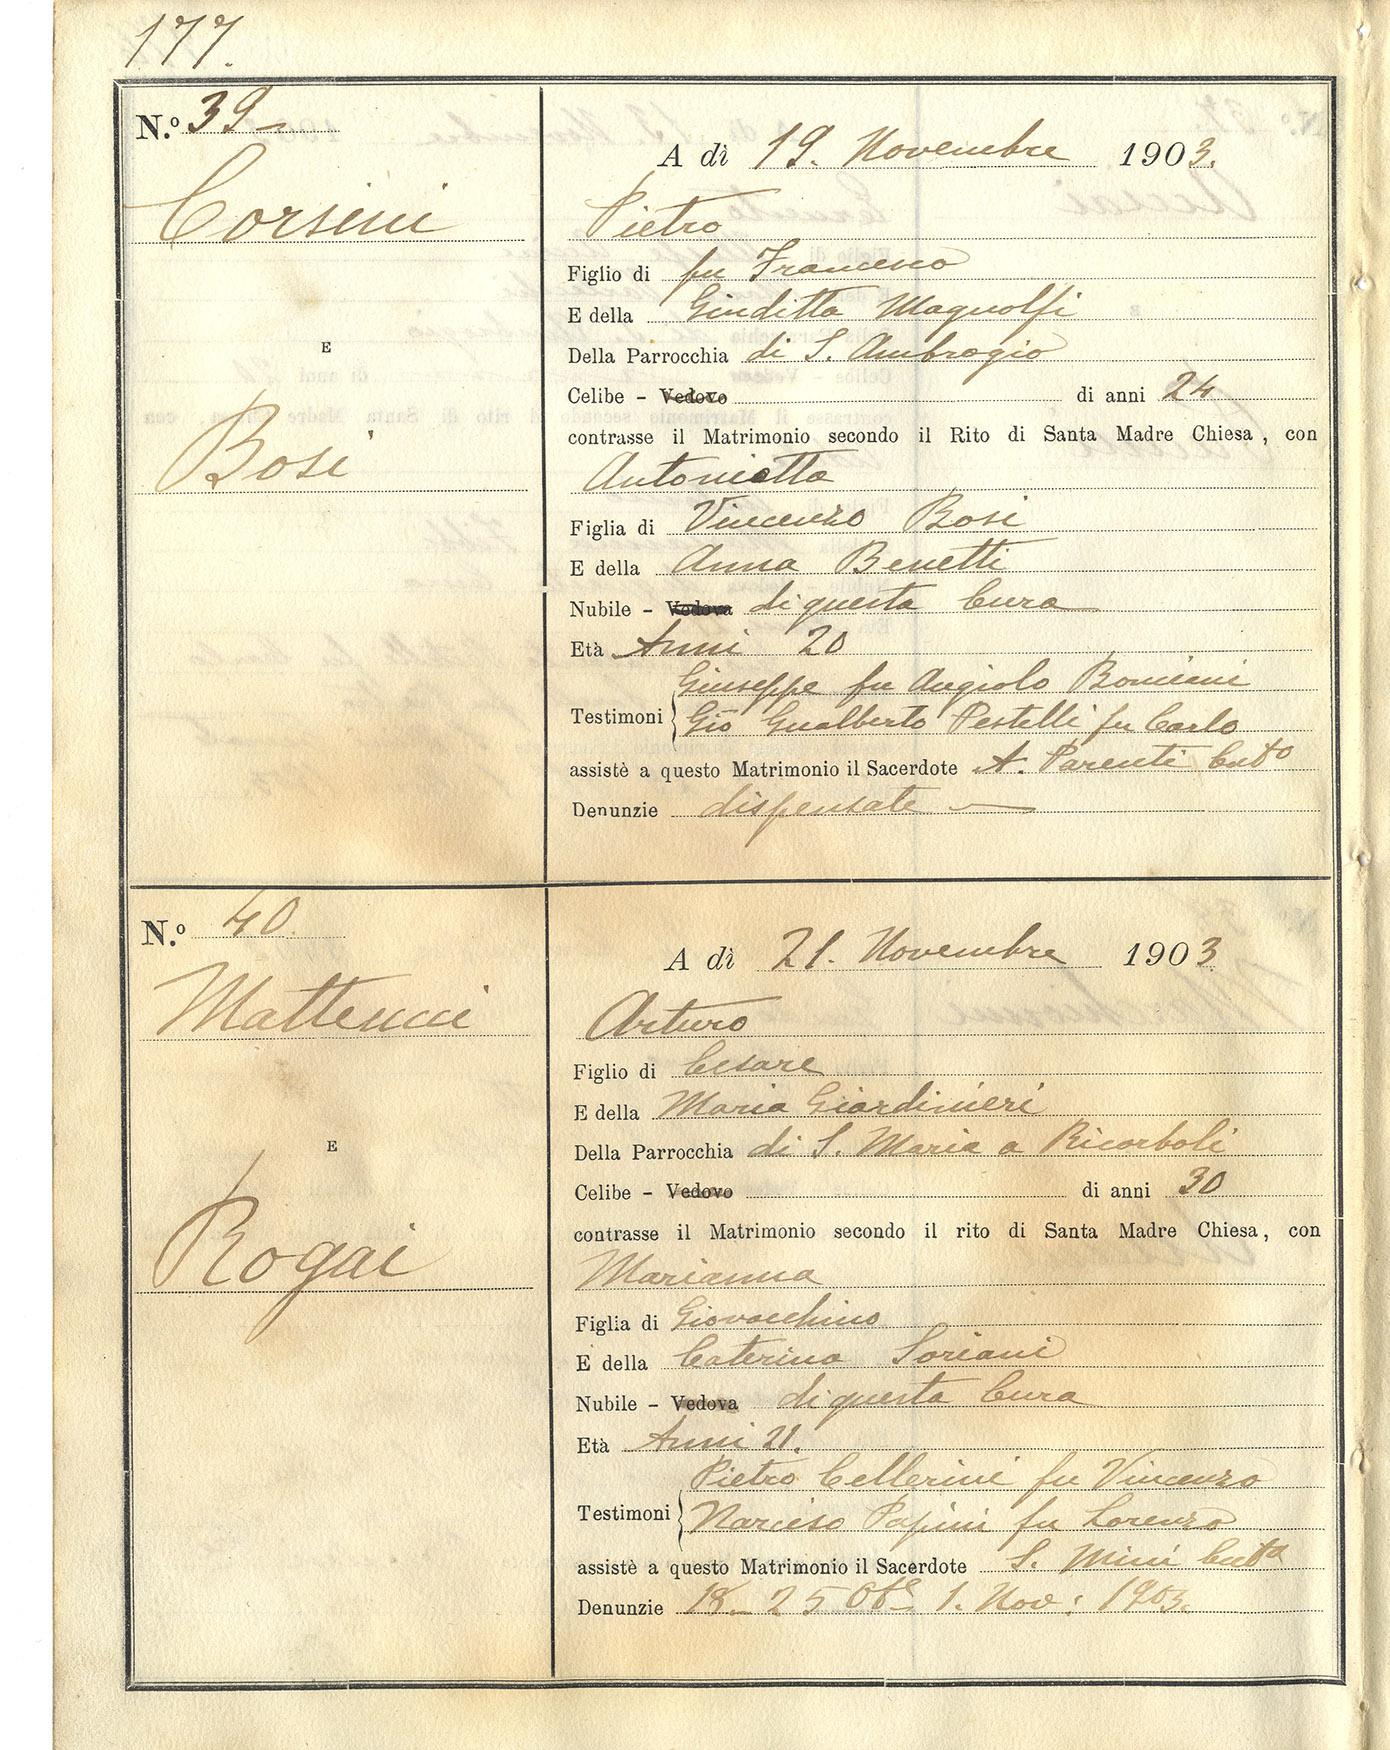 177.
N.º 39
Corsini
E
Bosi
A dì 19. Novembre 1903.
Pietro
Figlio di fu Francesco
E della Giuditta Magnolfi
Della Parrocchia di S. Ambrogio
Celibe - Vedovo di anni 24
contrasse il Matrimonio secondo il Rito di Santa Madre Chiesa, con
Antonietta
Figlia di Vincenzo Bosi
E della Anna Benetti
Nubile - Vedova di questa Cura
Età Anni 20
Giuseppe fu Angiolo Bomiani
Testimoni Gio Gualberto Pestelli fu Carlo
assistè a questo Matrimonio il Sacerdote A. Parenti Cuto
Denunzie dispensate
N.º 40.
Matteucci
E
Rogai
A dì 21. Novembre 1903
Arturo
Figlio di Cesare
E della Maria Giardinieri
Della Parrocchia di S. Maria a Ricorboli
Celibe - Vedovo di anni 30
contrasse il Matrimonio secondo il rito di Santa Madre Chiesa, con
Marianna
Figlia di Giovacchino
E della Caterina Soriani
Nubile - Vedova di questa Cura
Età Anni 21.
Pietro Cellerini fu Vincenzo
Testimoni Narciso Papini fu Lorenzo
assistè a questo Matrimonio il Sacerdote S. Mini Cuto
Denunzie 18 - 25 Obe 1. Nov: 1903.